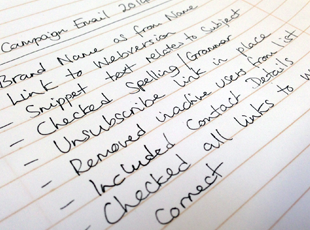 Campaign Email 2014
Brand Name as from Name
- Link to Webversion
- Snippet text relates to Subject
- Checked Spelling/Grammar
- Unsubscribe link in place
- Removed inactive users from list
- Included Contact Details
- Checked all links to
Correct